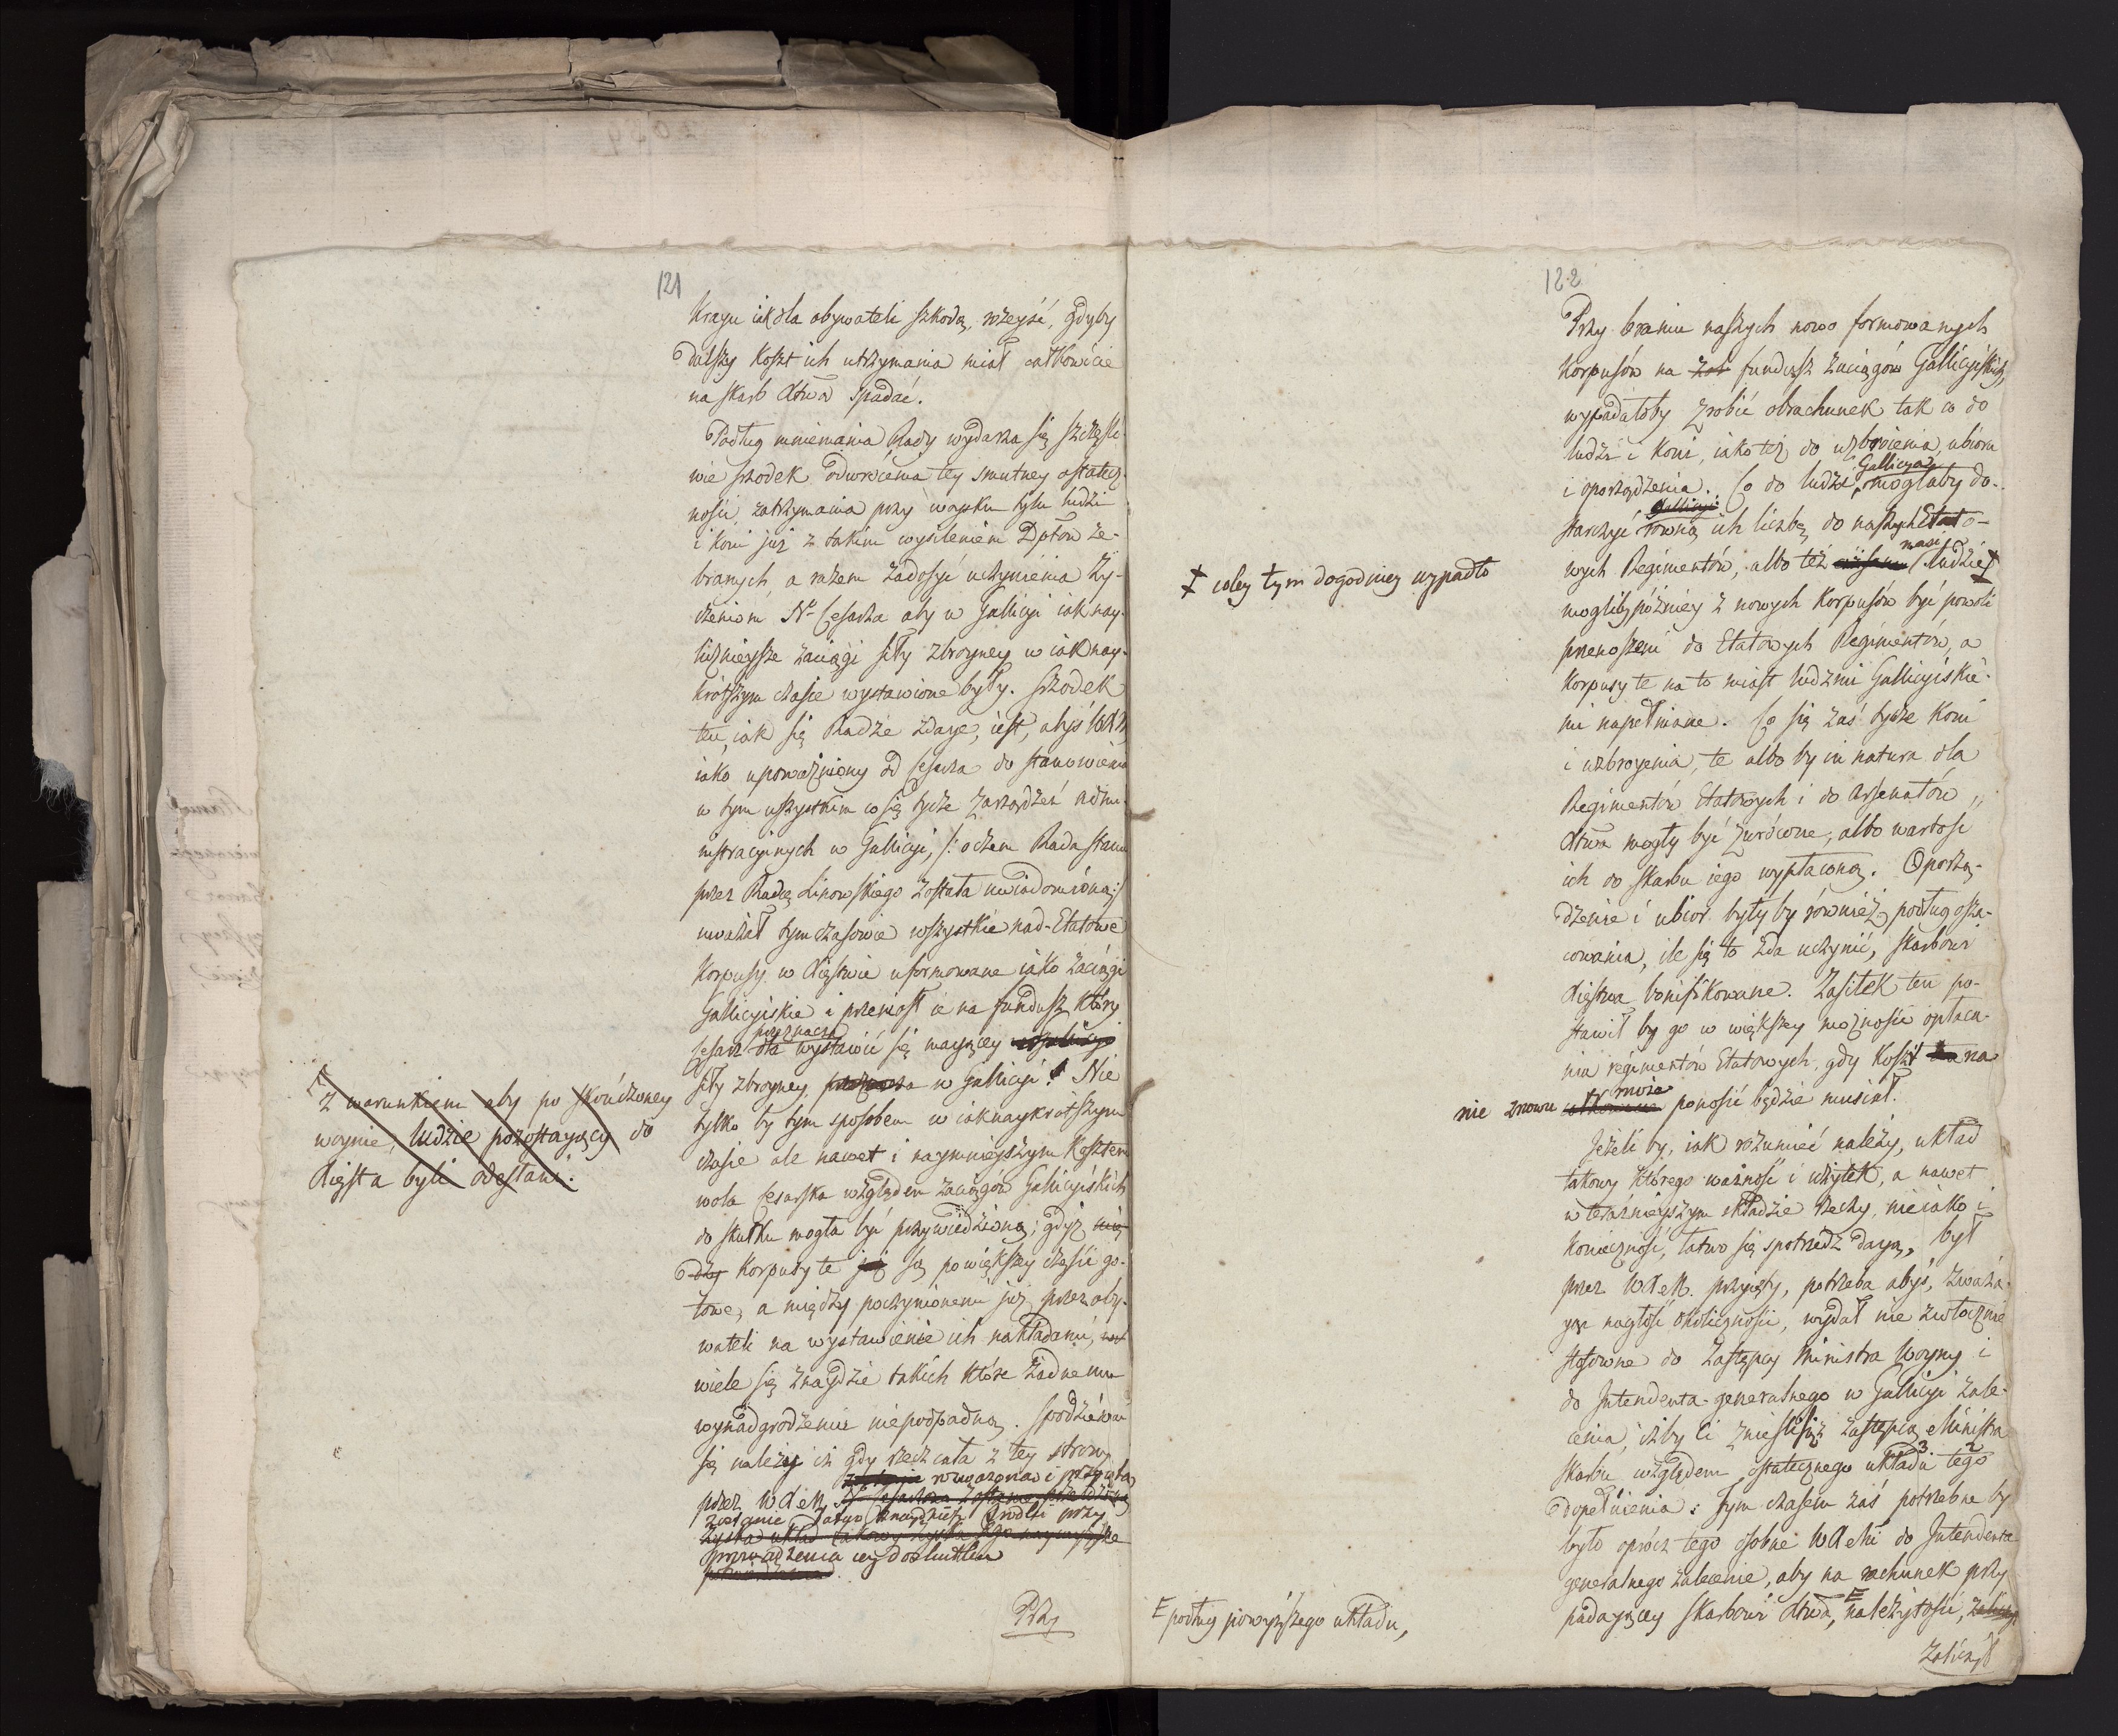 121
Kraju iak dla obywateli szkodą, rozejść, gdyby
dalszy koszt ich utrzymania miał całkowicie
na skarb Xtwa spadać.
Podług mniemania Rady wydarza się szczęśli-
wie srzodek odwrócenia tey smutney ostatecz-
ności zatrzymania przy woysku tylu ludzi
i koni już z takim wysileniem Dptów ze-
branych, a razem zadosyć uczynienia ży-
czeniom N. Cesarza aby w Gallicyi iak nay-
licznieysze zaciągi siły zbroyney w iak nay-
krótszym czasie wystawione były. Srzodek
ten, iak się Radzie zdaje, iest, abyś WXM
iako upoważniony od Cesarza do stanowienia
w tym wszystkim co się tycze zarządzeń admi-
nistracyinych w Gallicyi, /: o czem Rada stanu
przez Radcę Linowskiego została uwiadomiona :/
uważał tymczasowie wszystkie nad-Etatowe
Korpusy w Xięstwie uformowane iako zaciągi
Gallicyiskie i przeniosł ie na fundusz który
przeznacza
Cesarz dla wystawić się maiącey
siły zbroyney, w Gallicyi. Nie
tylko by tym sposobem w iak naykrótszym
czasie ale nawet i naymnieyszym kosztem
wola Cesarska względem zaciągów Gallicyiskich
do skutku mogła być przywiedzioną; gdyż
Korpusy te już są po większey części go-
towe, a między poczynionemi już przez oby-
wateli na wystawienie ich nakładami,
wiele się znaydzie takich które żadnemu
wynadgrodzeniu niepodpadną. Spodziewać
się należy iż gdy rzecz cała z tey strony
rozważona i przyięta
przez WXM N. Cesarzowi zostanie przełożona
zostanie łatwo znaydzie srodki przy
żyska układ takowy
prowadzenia iey do skutku
Przy
z warunkiem aby po skończoney
woynie, ludzie pozostaiący do
Xięsta byli odesłani.
122
Przy braniu naszych nowo formowanych
Korpusów na fundusz zaciągów Gallicyiskich,
wypadałoby zrobić obrachunek tak co do
ludzi i koni, iako też do uzbroienia, ubioru
Gallicya
i oporządzenia. Co do ludzi, mogłaby do-
Gallicya
starczyć równą ich liczbę do naszych Etato-
nasi
wych Regimentów, albo też ludzie ‡
mogliby późniey z nowych Korpusów być powoli
przenoszeni do Etatowych Regimentów, a
Korpusy te na to miast ludzmi Gallicyiskie-
mi napełniane. Co się zaś tycze koni
i uzbrojenia, te albo by in natura dla
Regimentów Etatowych i do Arsenałów
Xtwa mogły być zwrócone, albo wartość
ich do skarbu iego wypłaconą. Oporzą-
dzenie i ubior byłyby również podług osza-
cowania, ile się to zda uczynić, skarbowi
Xięstwa bonifikowane. Zasiłek ten po-
stawił by go w większey możności opłaca-
nia regimentów Etatowych, gdy koszt na
może
nie znowu ponosić będzie musiał.
Jeżeli by, iak rozumieć należy, układ
takowy którego ważność i użytek, a nawet
w teraźnieyszym składzie rzeczy, nieiako i
konieczność, łatwo się spotrzedz dają, był
przez WXM. przyięty, potrzeba abyś, zważa-
jąc nagłość okoliczności, wydał nie zwłocznie
stosowne do Zastępcy Ministra Woyny i
do Intendenta-generalnego w Gallicyi zale-
cenia, iżby ci znieśli się z zastępcą Ministra
Skarbu względem ostatecznego układu 3 tego 2
dopełnienia: Tym czasem zaś potrzebne by
było oprócz tego osobne WXMci do Intendenta
generalnego zalecenie, aby na rachunek przy
padaiącey skarbowi Xtwa, należytości,
zaliczył
‡ coby tym dogodniey wypadło
podług powyższego układu,